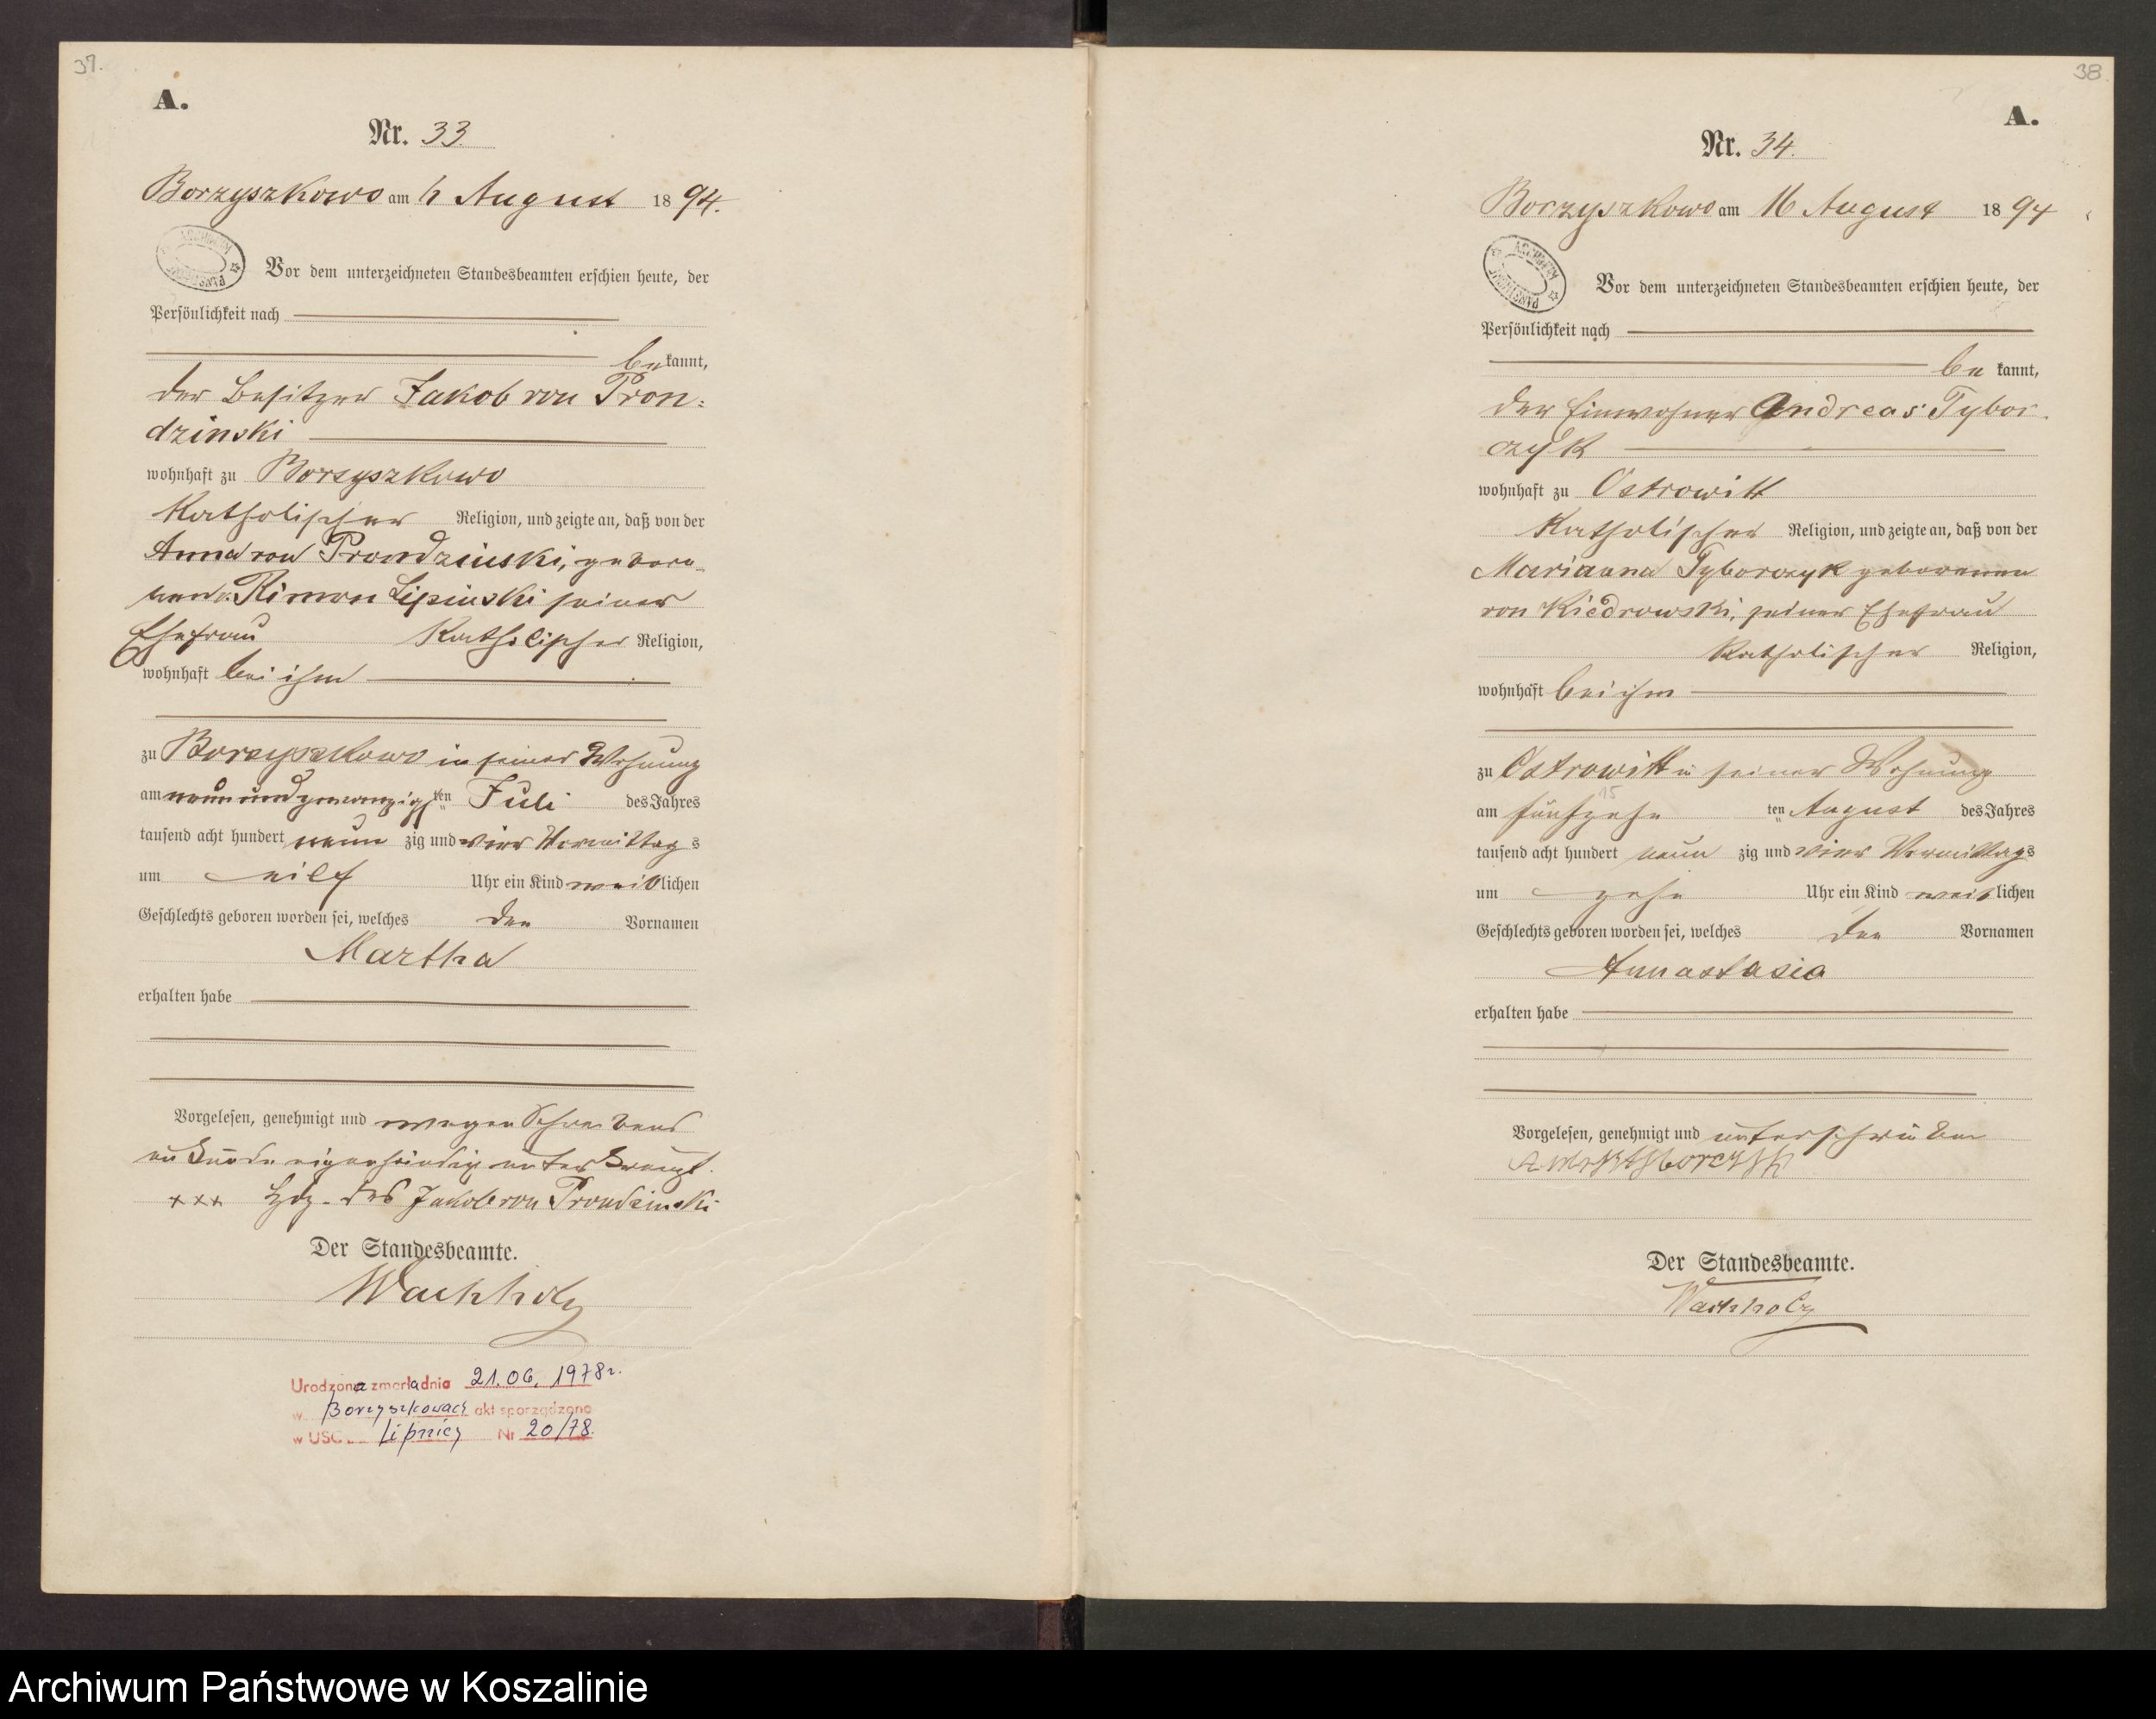 37.
A.
Nr. 33.
Borzyszkowo am August 1894.
Vor dem unterzeichneten Standesbeamten erschien heute, der
Persönlichkeit nach
be kannt,
der Besitzer Jakob von Pron=
dzinski
wohnhaft zu Borzyszkowo
Katholischer Religion, und zeigte an, daß von der
Anna von Prondzinski, gebore-
Lipinski seiner
Ehefrau Katholischer Religion,
wohnhaft bei ihm
zu Borzyszkowo in seiner Wohnung
am neun und zwanzigsten Juli des Jahres
tausend acht hundert neun zig und vier Vormittag s
um eilf Uhr ein Kind weiblichen
Geschlechts geboren worden sei, welches den Vornamen
Martha
erhalten habe
Vorgelesen, genehmigt und wegen Schreibens
unkunde eigenhändig unterkreuzt.
+++ Hdz. des Jakob von Prondzinski
Der Standesbeamte.
Wachholz
Urodzona zmarła dnia 21.06.1978 r.
w Borzyszkowach akt sporządzono
w USC Lipnicy Nr 20/78.
38.
A.
Nr. 34.
Borzyszkowo am 16 August 1894
Vor dem unterzeichneten Standesbeamten erschien heute, der
Persönlichkeit nach
be kannt,
der Einwohner Andreas Tybor-
czyk
wohnhaft zu Ostrowitt
Katholischer Religion, und zeigte an, daß von der
Marianna Tyborczyk geborenen
von Kiedrowski, seiner Ehefrau
Katholischer Religion,
wohnhaft bei ihm
zu Ostrowitt in seiner Wohnung
am fünfzehn ten August des Jahres
15
tausend acht hundert neun zig und vier Vormittags
um zehn Uhr ein Kind weiblichen
Geschlechts geboren worden sei, welches den Vornamen
Annastasia
erhalten habe
Vorgelesen, genehmigt und unterschrieben
Der Standesbeamte.
Wachholz
Archiwum Państwowe w Koszalinie